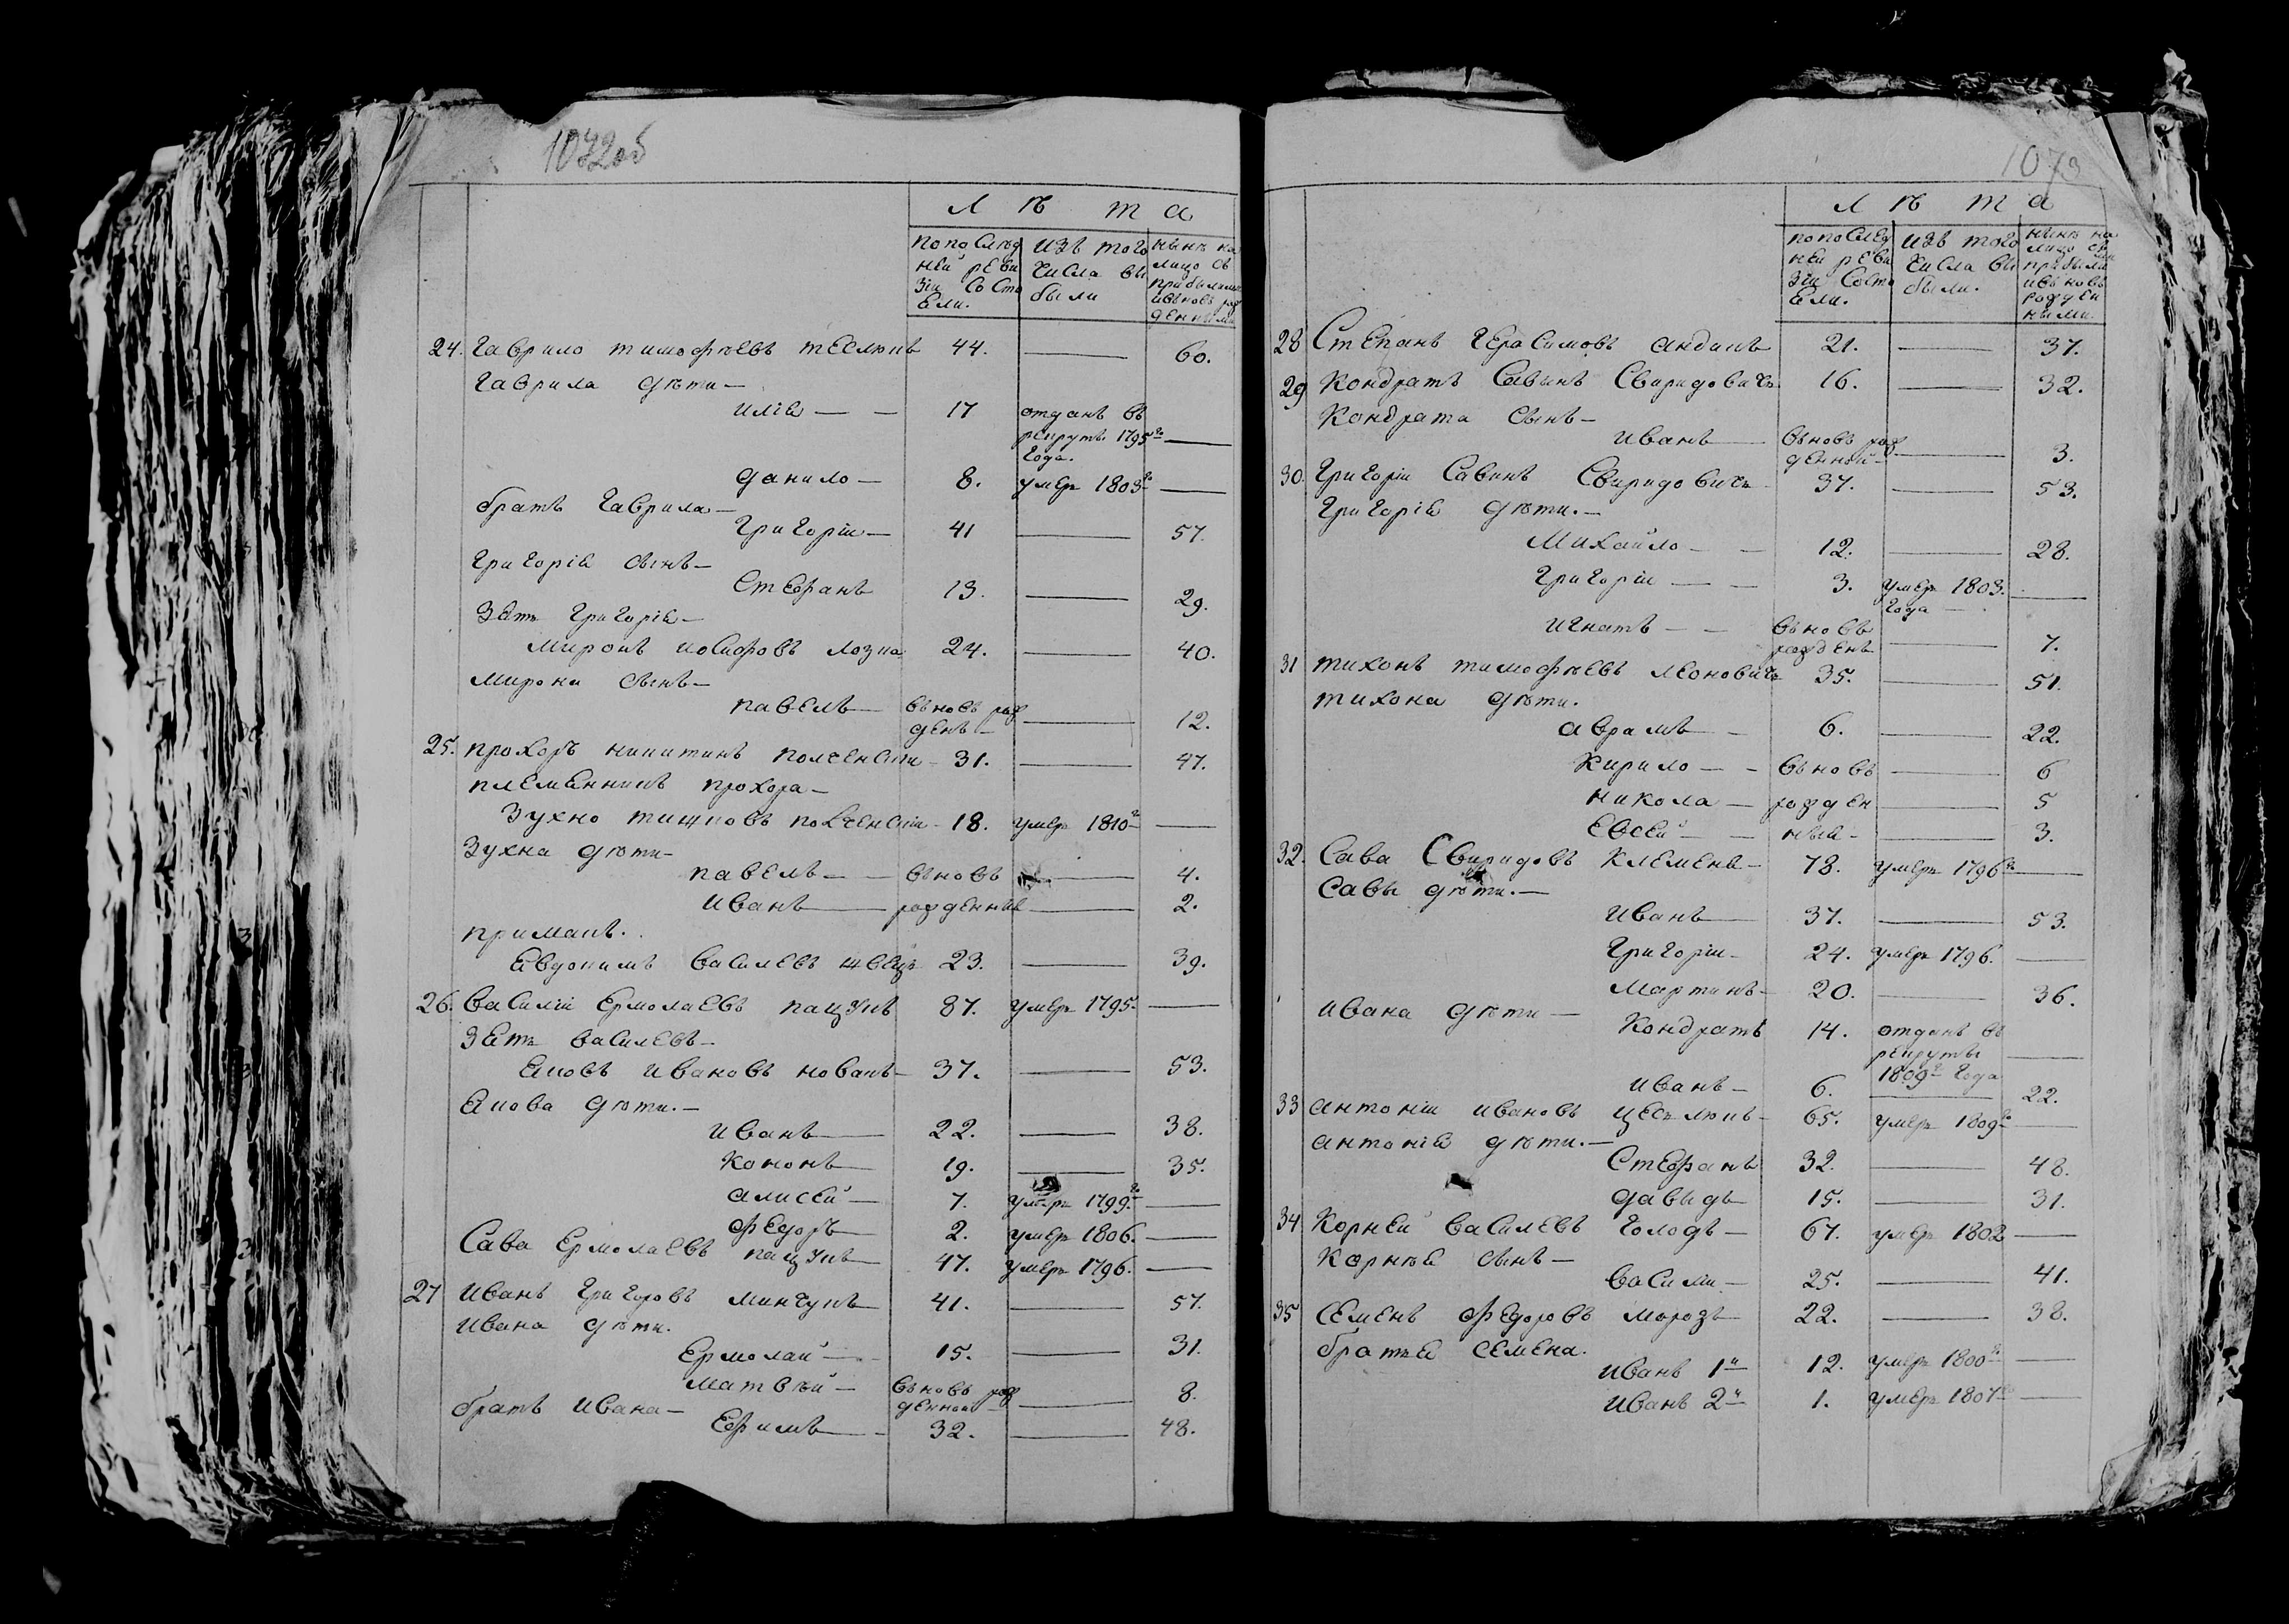 1072об
Лѣта
по послѣд
ней реви
зіи состо
яли.
изъ того
числа вы
были
нынѣ на
лицо съ
прибылыми
и вновь рож
денными
24. Гаврило Тимофѣевъ Теслюкъ 44. — 60.
Гаврила дѣти —
Илія — — 17 отданъ въ
рекруты 1795го —
года.
Данило — 8. умеръ 1803го —
братъ Гаврила —
Григорій — 41 — 57.
Григорія сынъ —
Стефанъ 13. — 29.
Зять Григорія —
Миронъ Иосифовъ Лозка 24. — 40.
Мирона сынъ —
Павелъ — вновь рож
денъ — — 12.
25. Прохоръ Никитинъ 31. — 47.
племянникъ Прохора —
Зухно 18. умеръ 1810го —
Зухна дѣти —
Павелъ — — вновь — 4.
Иванъ — рожденные — 2.
примакъ.
Евдокимъ Васильевъ Швецъ 23. — 39.
26. Василій Ермолаевъ Пацукъ 87. умеръ 1795. —
Зять Васильевъ —
Яковъ Ивановъ Новакъ — 37. — 53.
Якова дѣти. —
Иванъ — 22. — 38.
Кононъ 19. — 35.
Алисей — 7. умеръ 1799го —
Федоръ 2. умеръ 1806. —
Сава Ермолаевъ Пацукъ 47. умеръ 1796. —
27 Иванъ Григоровъ Минчукъ 41. — 57.
Ивана дѣти.
Ермолай — 15. — 31.
Матвѣй — вновь рож
денной — 8.
братъ Ивана —
Ефимъ — 32. — 48.
1073
Лѣта
по послед
ней реви
зіи состо
яли.
изъ того
числа вы
были.
нынѣ на
лицо съ
прибыли
и вновь
рожден
ными.
28 Степанъ Герасимовъ 21. — 37.
29 Кондратъ Савинъ Свиридовичъ 16. — 32.
Кондрата сынъ —
Иванъ — вновь рож
денной — — 3.
30. Григорій Савинъ Свиридовичъ 37. — 53.
Григорія дѣти. —
Михайло — — 12. — 28.
Григорій — — 3. умеръ 1803. —
года —
Игнатъ — — вновь
рожденъ — 7.
31 Тихонъ Тимофѣевъ Леоновичъ 35. — 51.
Тихона дѣти.
Аврамъ — 6. — 22.
Кирило — — вновь — 6
Никола — рожден — 5
Евсей — — ныя — — 3.
32. Сава Свиридовъ Клемена — 78. умеръ 1796го —
Савы дѣти. —
Иванъ — 37. — 53.
Григорій — 24. умеръ 1796. —
Мартинъ — 20. — 36.
Ивана дѣти —
Кондратъ 14. отданъ въ
рекруты —
1809го года
Иванъ — 6. — 22.
33 Антоній Ивановъ 65. умеръ 1809го —
Антонія дѣти. —
Стефанъ 32. — 48.
Давыдъ 15. — 31.
34 Корней Васильевъ Голодъ — 67. умеръ 1802 —
Корнѣя сынъ —
Василій — 25. — 41.
35 Семенъ Федоровъ Морозъ 22. — 38.
братья Семена.
Иванъ 1й 12. умеръ 1800го —
Иванъ 2й 1. умеръ 1807го —